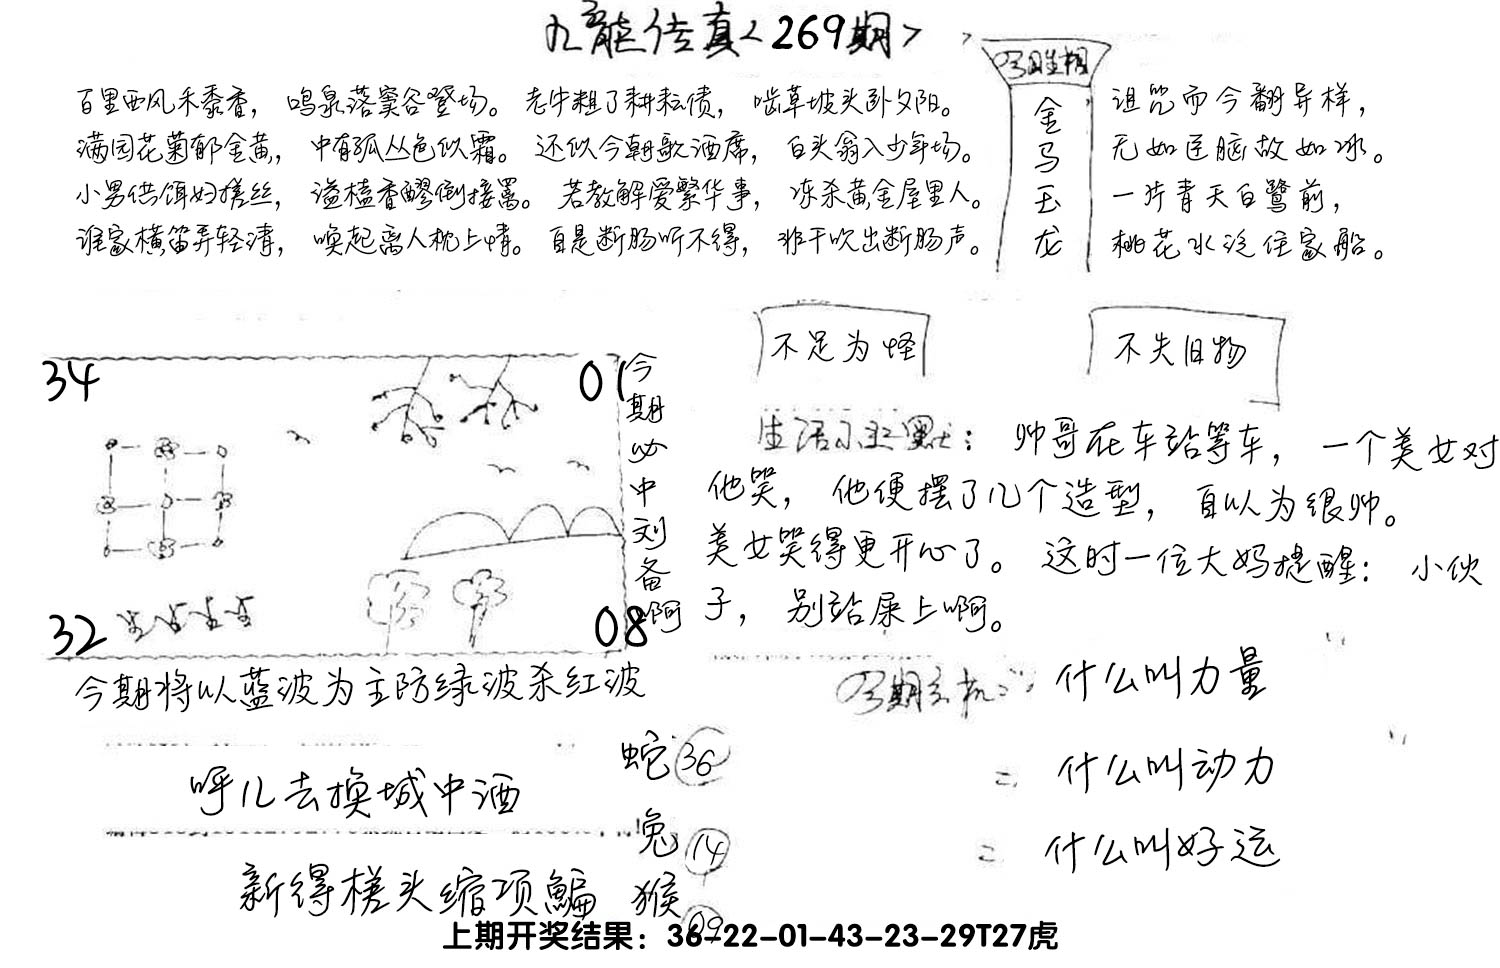 九龙传真<269期>
百里西风禾黍香，鸣泉落窦谷登场。老牛粗了耕耘债，啮草坡头卧夕阳。
满园花菊郁金黄，中有孤丛色似霜。还似今朝歌酒席，白头翁入少年场。
小男供饵妇搓丝，溢榼香醪倒接䍦。若教解爱繁华事，冻杀黄金屋里人。
谁家横笛弄轻清，唤起离人枕上情。自是断肠听不得，非干吹出断肠声。
今期生相
金马玉龙
诅咒而今翻异样，
无如匡脑故如冰。
一片青天白鹭前，
桃花水泛住家船。
不足为怪
不失旧物
34
01
32
08
今期必中刘备啊
生活小幽默：帅哥在车站等车，一个美女对
他笑，他便摆了几个造型，自以为很帅。
美女笑得更开心了。这时一位大妈提醒：小伙
子，别站屎上啊。
今期将以蓝波为主防绿波杀红波
今期玄机：什么叫力量
二 什么叫动力
二 什么叫好运
呼儿去换城中酒
新得槎头缩项鳊
蛇 36
兔 14
猴 09
上期开奖结果：36-22-01-43-23-29T27虎